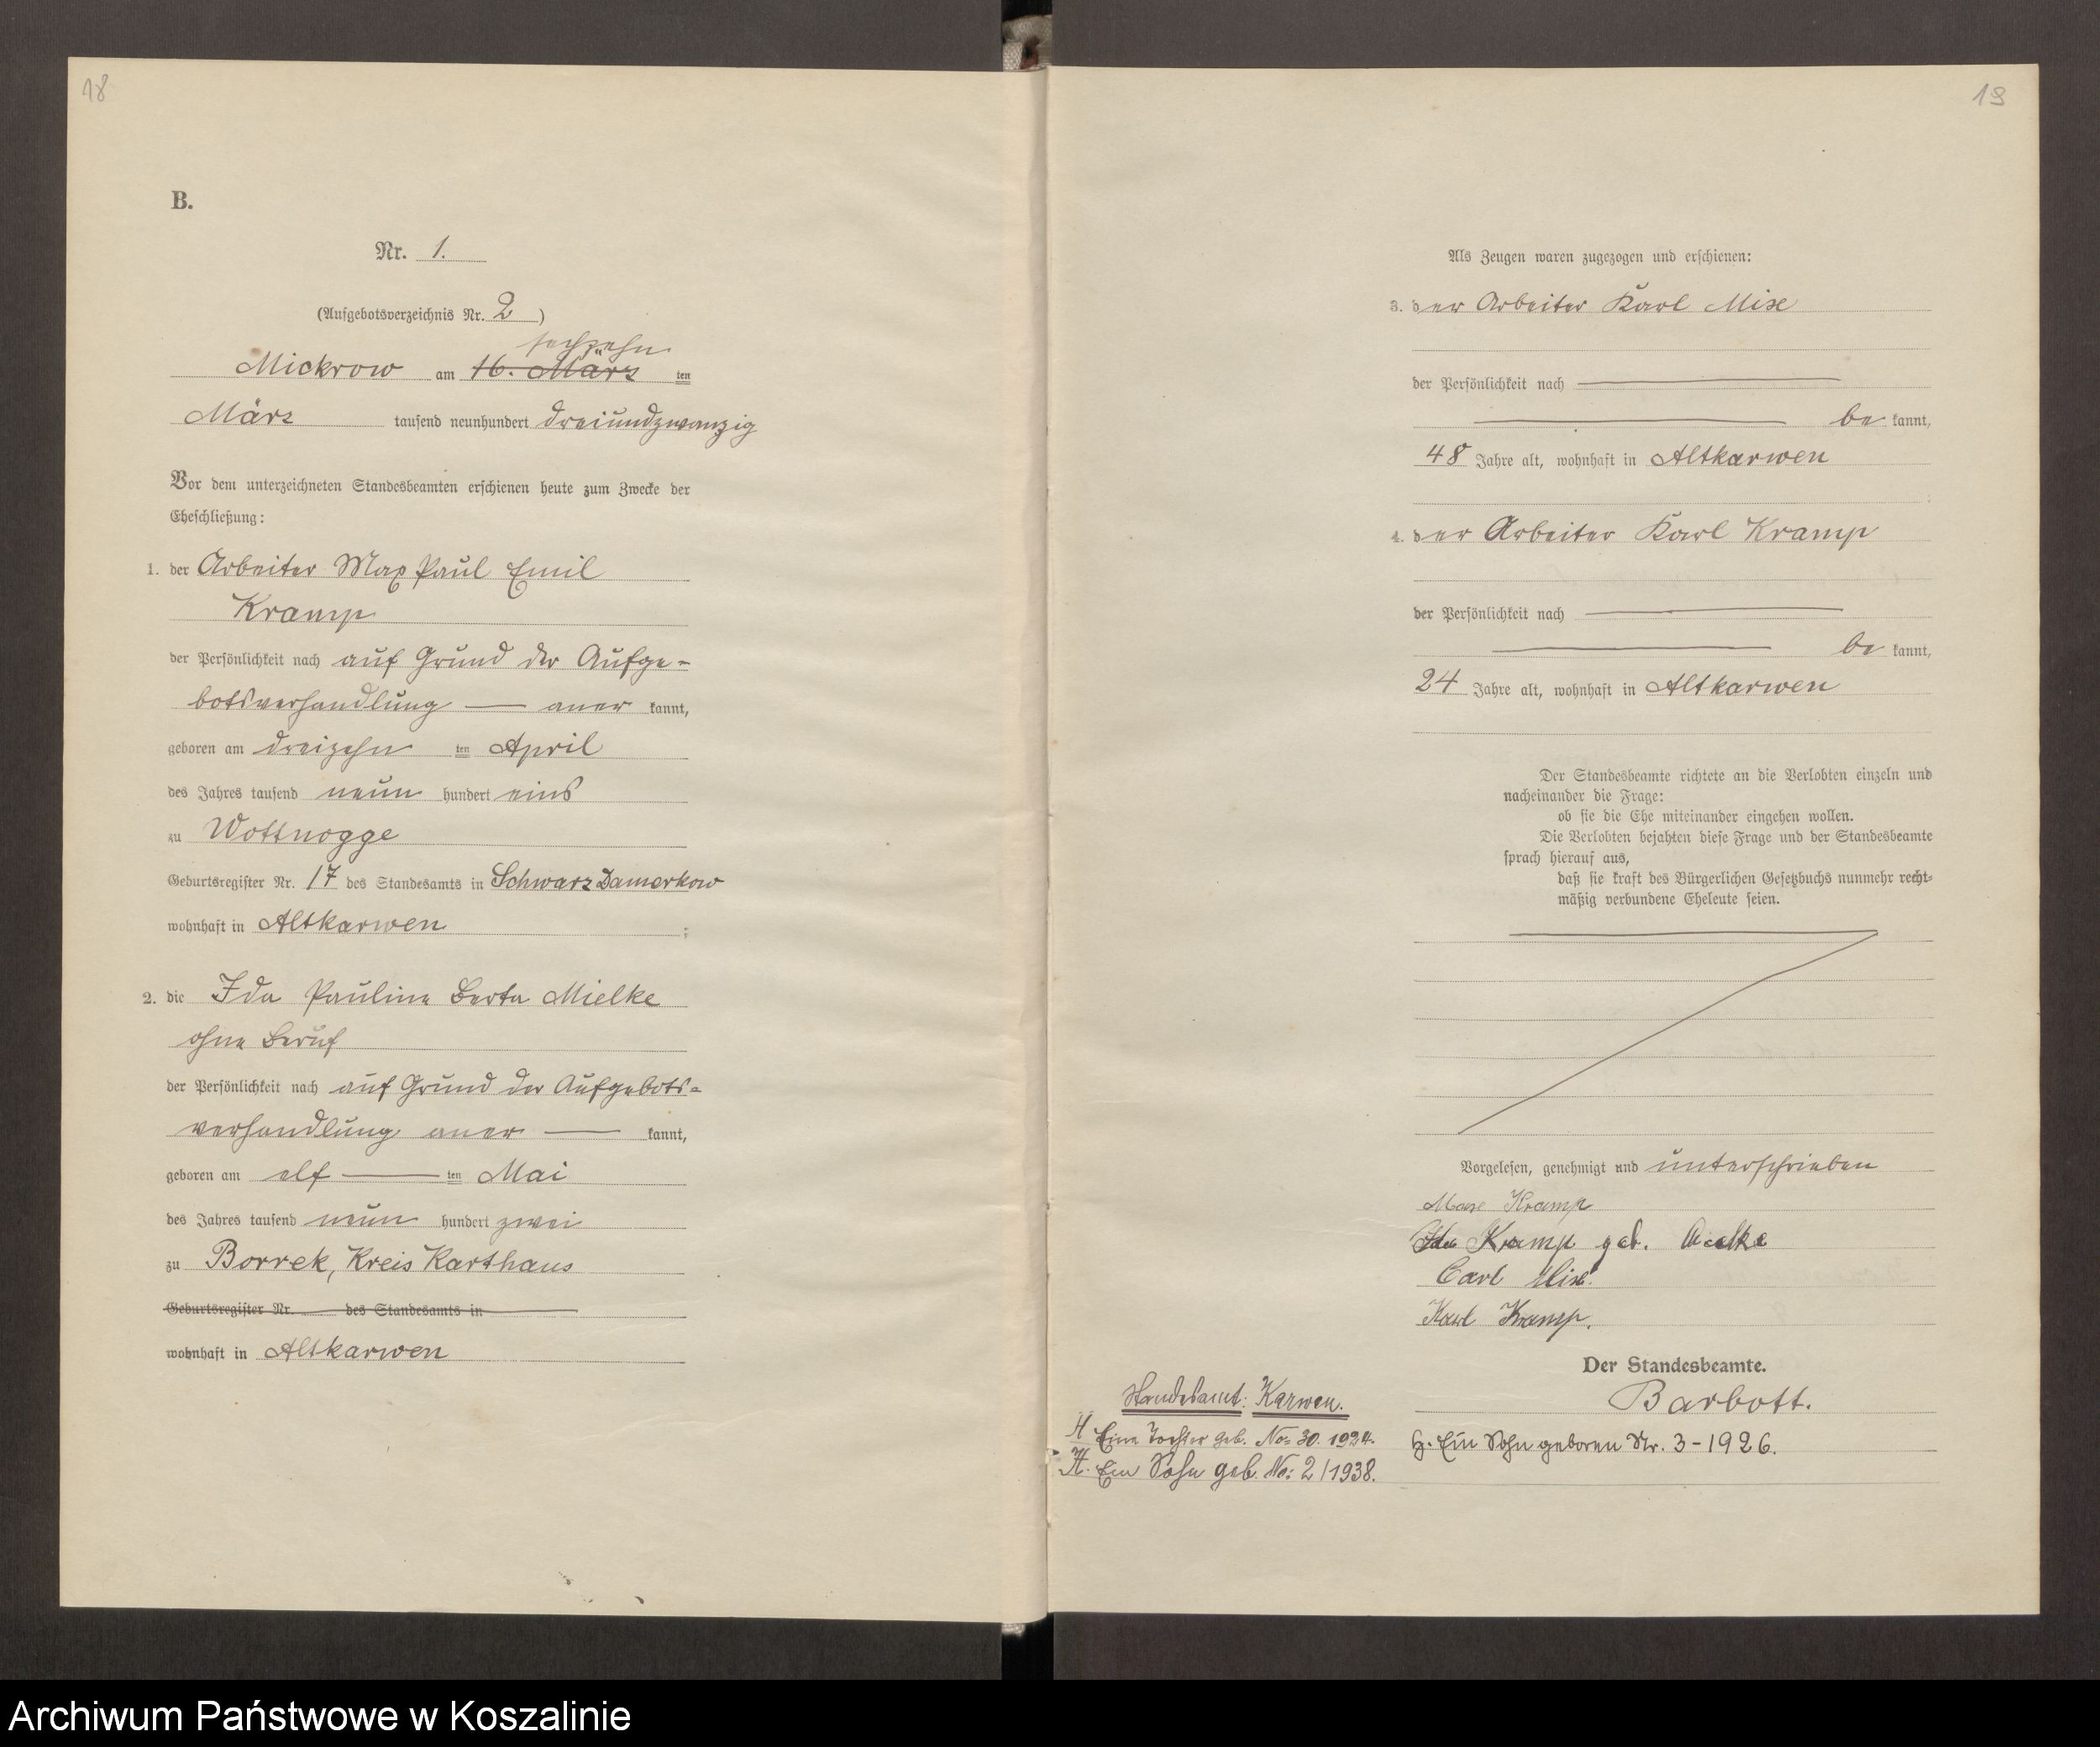 18
B.
Nr. 1.
(Aufgebotsverzeichnis Nr. 2)
sechzehn
Mickrow am 16. März ten
März tausend neunhundert dreiundzwanzig
Vor dem unterzeichneten Standesbeamten erschienen heute zum Zwecke der
Eheschließung:
1. der Arbeiter Max Paul Emil
Kramp
der Persönlichkeit nach auf Grund der Aufge-
botsverhandlung — aner kannt,
geboren am dreizehn ten April
des Jahres tausend neun hundert eins
zu Wottnogge
Geburtsregister Nr. 17 des Standesamts in Schwarz Damerkow
wohnhaft in Altkarwen ;
2. die Ida Pauline Berta Mielke
ohne Beruf
der Persönlichkeit nach auf Grund der Aufgebots-
verhandlung aner — kannt,
geboren am elf — ten Mai
des Jahres tausend neun hundert zwei
zu Borrek, Kreis Karthaus
Geburtsregister Nr. des Standesamts in
wohnhaft in Altkarwen
19
Als Zeugen waren zugezogen und erschienen:
3. der Arbeiter Karl Mix
der Persönlichkeit nach —
— be kannt,
48 Jahre alt, wohnhaft in Altkarwen
4. der Arbeiter Karl Kramp
der Persönlichkeit nach —
— be kannt,
24 Jahre alt, wohnhaft in Altkarwen
Der Standesbeamte richtete an die Verlobten einzeln und
nacheinander die Frage:
ob sie die Ehe miteinander eingehen wollen.
Die Verlobten bejahten diese Frage und der Standesbeamte
sprach hierauf aus,
daß sie kraft des Bürgerlichen Gesetzbuchs nunmehr recht-
mäßig verbundene Eheleute seien.
Vorgelesen, genehmigt und unterschrieben
Max Kramp
Ida Kramp geb. Mielke
Carl Mix.
Karl Kramp.
Der Standesbeamte.
Barbott.
Standesamt: Karwen.
H Eine Tochter geb. No: 30. 1924.
H. Ein Sohn geb. No: 2/1938.
H. Ein Sohn geboren Nr. 3-1926.
Archiwum Państwowe w Koszalinie